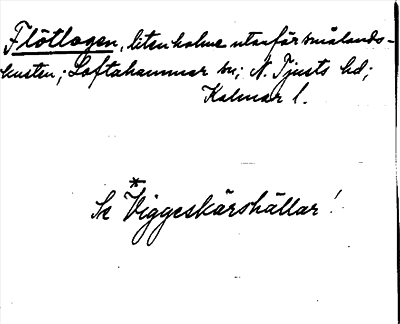 Flötlogen, liten holme utanför smålands-
kusten; Loftahammar sn; N. Tjusts hd;
Kalmar l.
*
Se Viggeskärshällar!